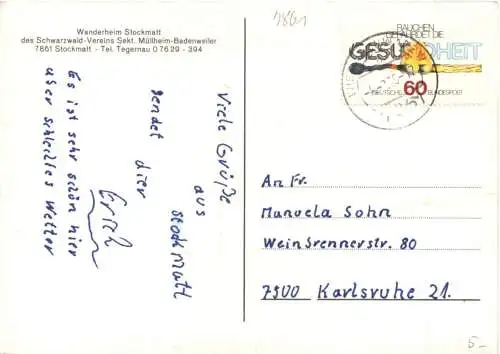 Wanderheim Stockmatt
des Schwarzwald-Vereins Sekt. Müllheim-Badenweiler
7861 Stockmatt - Tel. Tegernau 0 76 29 - 394
7861
RAUCHEN
GEFÄHRDET DIE
GESUNDHEIT
60
DEUTSCHE BUNDESPOST
Viele Grüße
aus
Stockmatt
sendet dir
Erich
Es ist sehr schön hier
aber schleißes Wetter
An Fr.
Manuela Sohn
Weinbrennerstr. 80
7500 Karlsruhe 21.
5.-